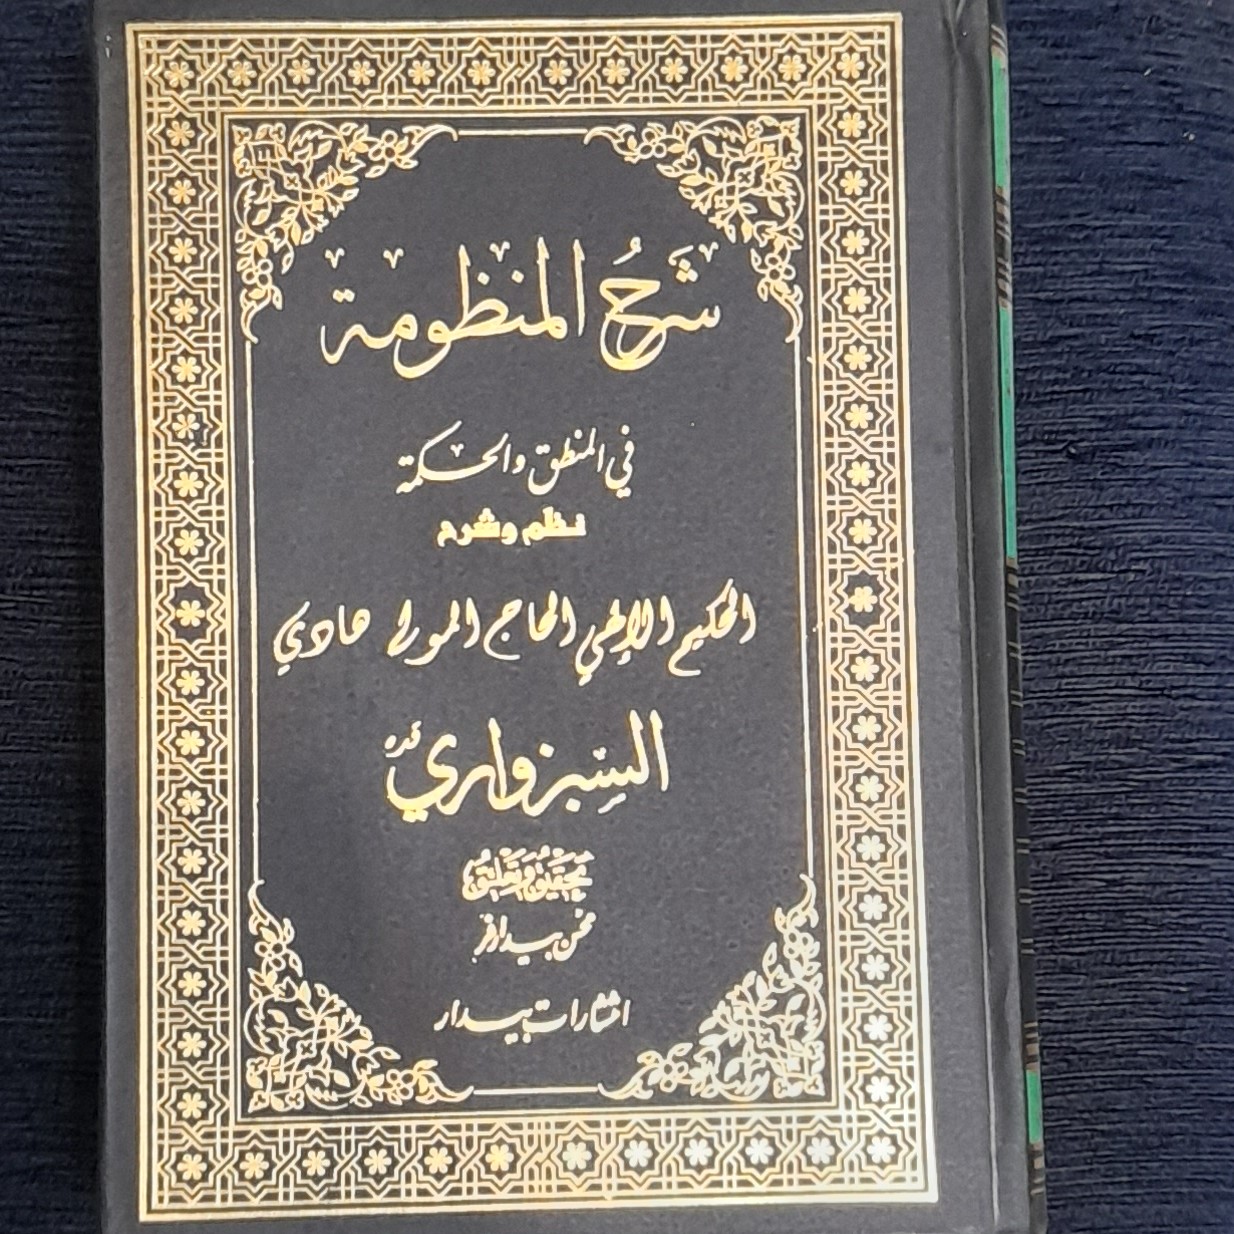 شَرحُ المنظومة
في المنطق والحكمة
نظم وشرح
الحكيم الإلهي الحاج المولى هادي
السبزواري قده
تحقيق وتعليق
محسن بيدارفر
انتشارات بيدار